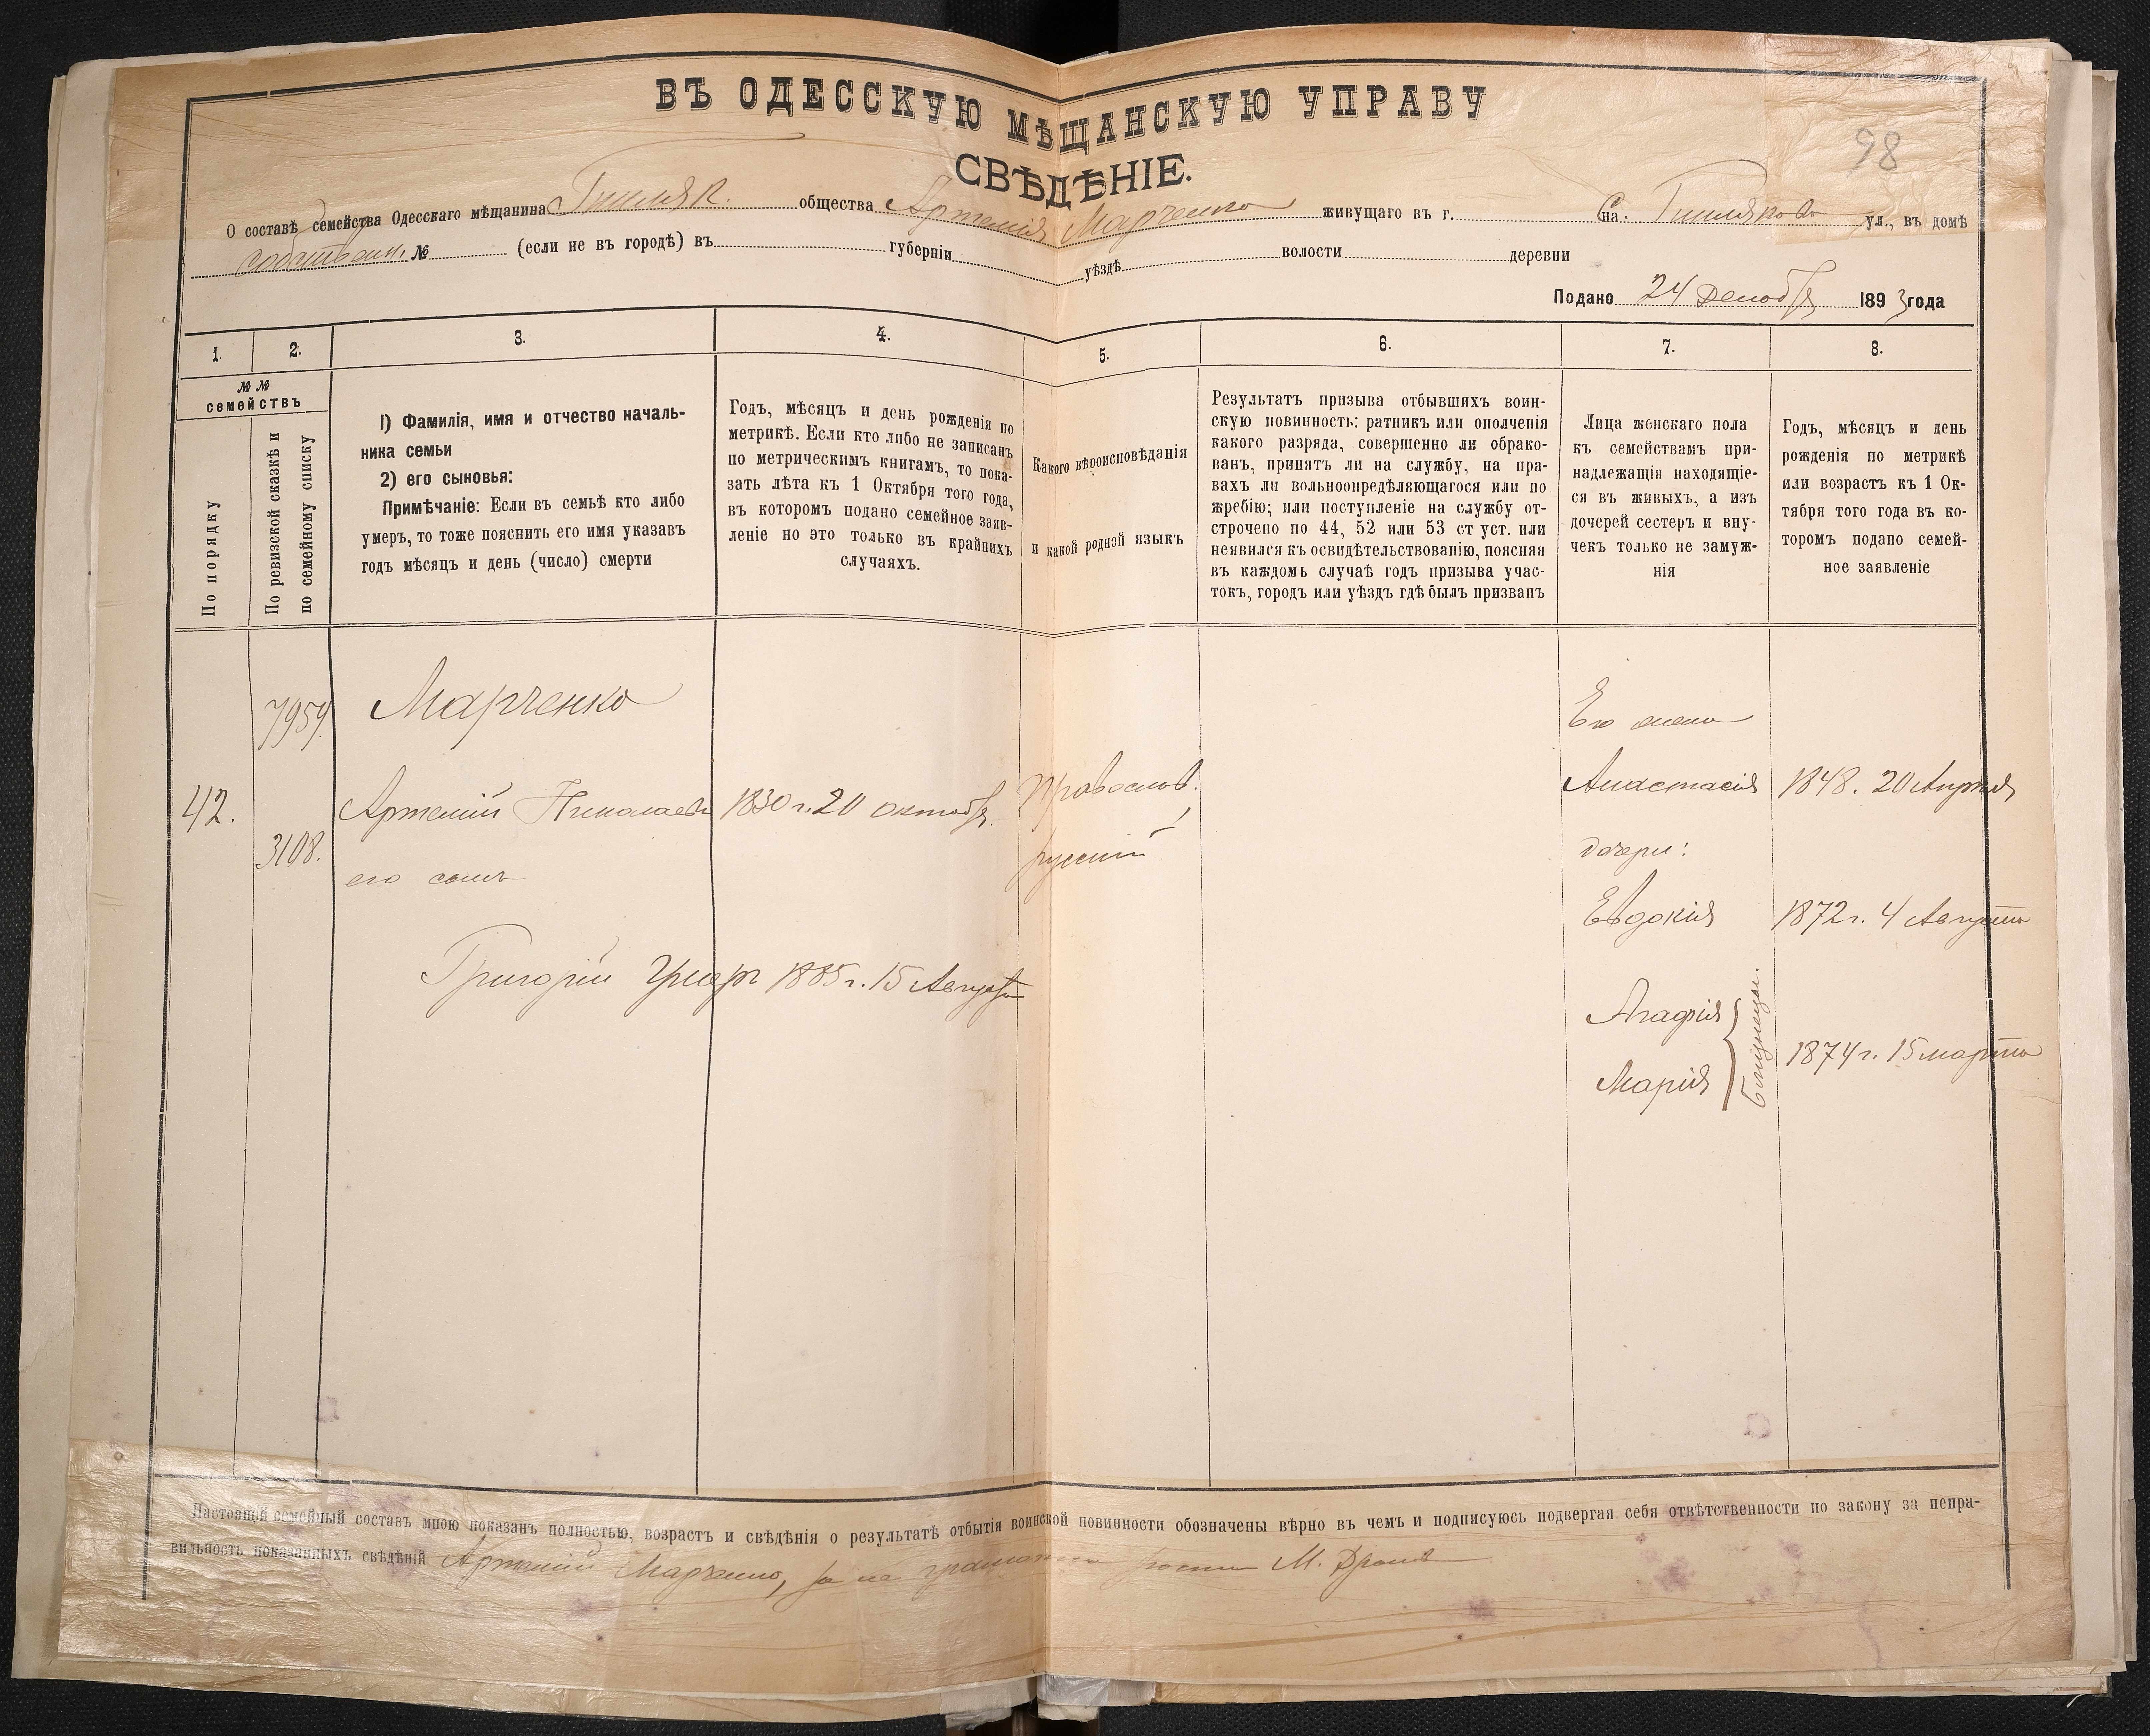 ВЪ ОДЕССКУЮ МѢЩАНСКУЮ УПРАВУ
98
СВѢДѢНІЕ.
О составѣ семейства Одесскаго мѣщанина Гниляк. общества Артемія Марченко живущаго въ г. на: Гниляково ул., въ домѣ
собствен. № (если не въ городѣ) въ губерніи уѣздѣ волости деревни
Подано 24 Декабр 1893 года
1. 2. 3. 4. 5. 6. 7. 8.
№№
семействъ
По порядку
По ревизской сказкѣ и
по семейному списку
1) Фамилія, имя и отчество началь-
ника семьи
2) его сыновья:
Примѣчаніе: Если въ семьѣ кто либо
умеръ, то тоже пояснить его имя указавъ
годъ мѣсяцъ и день (число) смерти
Годъ, мѣсяцъ и день рожденія по
метрикѣ. Если кто либо не записанъ
по метрическимъ книгамъ, то пока-
зать лѣта къ 1 Октября того года,
въ которомъ подано семейное заяв-
леніе но это только въ крайнихъ
случаяхъ.
Какого вѣроисповѣданія
и какой родной языкъ
Результатъ призыва отбывшихъ воин-
скую повинность: ратникъ или ополченія
какого разряда, совершенно ли обрако-
ванъ, принятъ ли на службу, на пра-
вахъ ли вольноопредѣляющагося или по
жребію; или поступленіе на службу от-
строчено по 44, 52 или 53 ст уст. или
неявился къ освидѣтельствованію, поясняя
въ каждомъ случаѣ годъ призыва учас-
токъ, городъ или уѣздъ гдѣ былъ призванъ
Лица женскаго пола
къ семействамъ при-
надлежащія находящіе-
ся въ живыхъ, а изъ
дочерей сестеръ и вну-
чекъ только не замуж-
нія
Годъ, мѣсяцъ и день
рожденія по метрикѣ
или возрастъ къ 1 Ок-
тября того года въ ко-
торомъ подано семей-
ное заявленіе
7959. Марченко
Его жена
42. Артемій Николаевъ 1830 г. 20 октябр. Православ. Анастасія 1848. 20 Апреля
3108. русскій дочери:
его сынъ
Евдокія 1872 г. 4 Августа
Григорій Умеръ 1885 г. 15 Августа
Агафія
Марія
близнецы.
1874 г. 15 марта
Настоящій семейный составъ мною показанъ полностью, возрастъ и свѣдѣнія о результатѣ отбытія воинской повинности обозначены вѣрно въ чемъ и подписуюсь подвергая себя отвѣтственности по закону за непра-
вильность показанныхъ свѣдѣній Артемій Марченко, за не М.